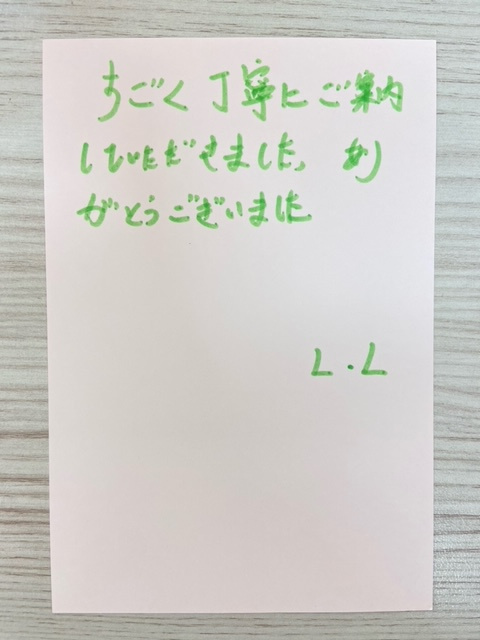 すごく丁寧にご案内
していただきました。あり
がとうございました
L.L